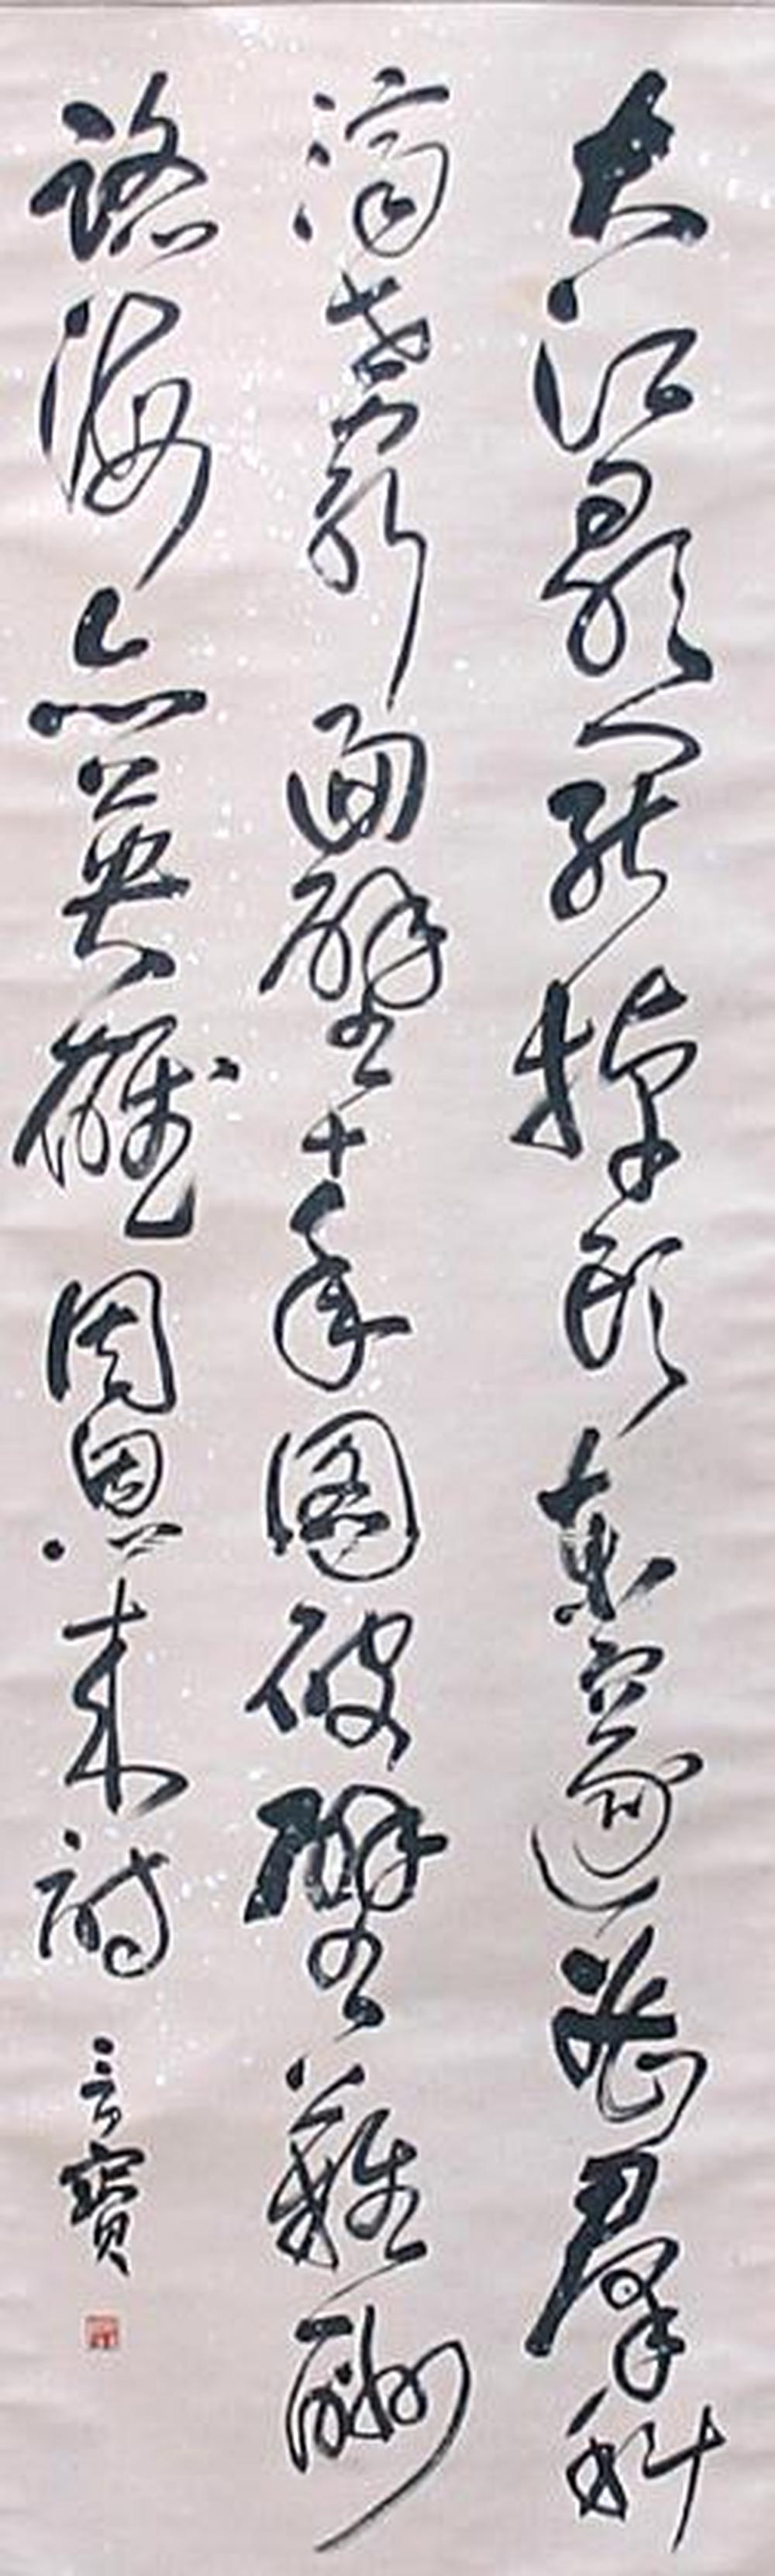 大江歌罷掉頭東邃密羣科
濟世窮面壁十年圖破壁難酬
蹈海亦英雄周恩来詩 言寶